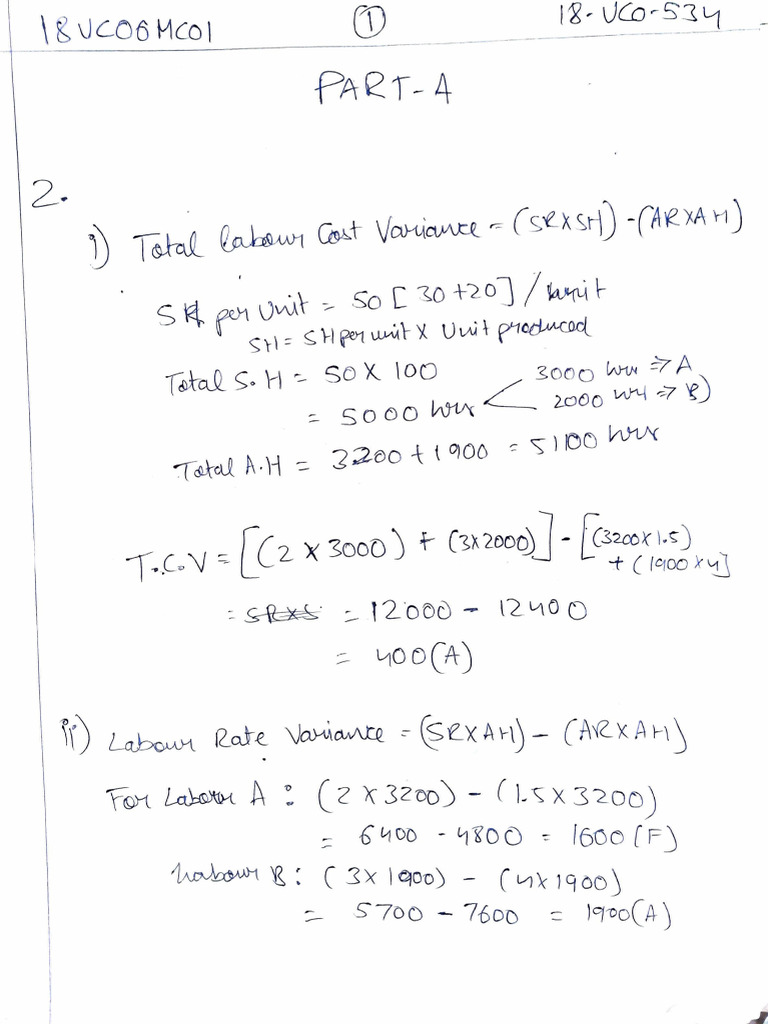 18UCO6MC01 1 18-UCO-534
PART-A
2.
i) Total labour Cost Variance = (SR×SH) - (AR×AH)
SH per Unit = 50 [30+20] / unit
SH = SH per unit × Unit produced
Total S.H = 50 × 100
3000 hrs => A
= 5000 hrs
2000 hrs => B)
Total A.H = 3200 + 1900 = 5100 hrs
T.C.V = [(2 × 3000) + (3×2000)] - [(3200×1.5)
+ (1900 × 4]
= SR×S = 12000 - 12400
= 400(A)
ii) Labour Rate Variance = (SR×AH) - (AR×AH)
For Labour A : (2 × 3200) - (1.5 × 3200)
= 6400 - 4800 = 1600 (F)
Labour B : (3 × 1900) - (4 × 1900)
= 5700 - 7600 = 1900(A)